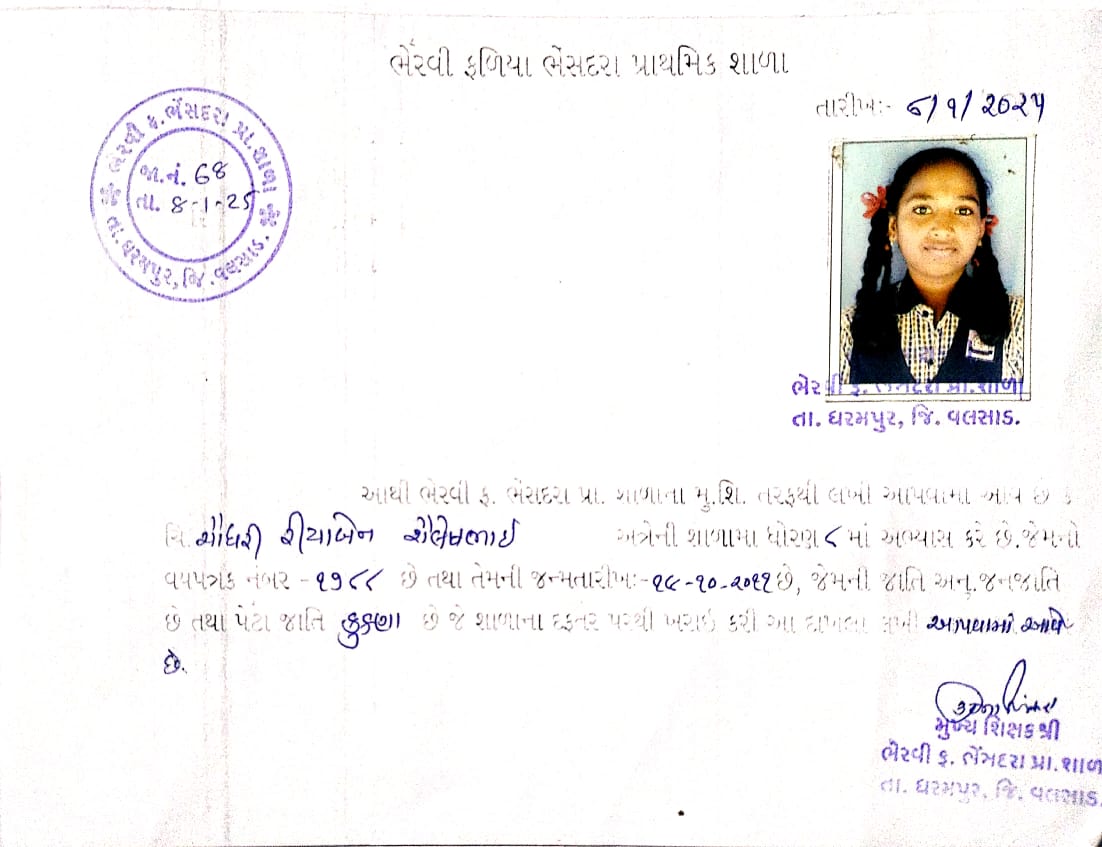 ભેરવી ફળિયા ભેંસદરા પ્રાથમિક શાળા
તારીખ:- ૮/૧/૨૦૨૫
ભેરવી ફ. ભેંસદરા પ્રા. શાળા
જા.નં. 68
તા. 8-1-25
તા. ધરમપુર, જિ. વલસાડ.
ભેરવી ફ. ભેંસદરા પ્રા.શાળા
તા. ધરમપુર, જિ. વલસાડ.
આથી ભેરવી ફ. ભેંસદરા પ્રા. શાળાના મુ.શિ. તરફથી લખી આપવામા આવે છે કે
ચિ. ચૌધરી રીયાબેન શૈલેષભાઇ અત્રેની શાળામા ધોરણ ૮ માં અભ્યાસ કરે છે.જેમનો
વયપત્રક નંબર - ૧૭૮૮ છે તથા તેમની જન્મતારીખ:- ૧૯-૧૦-૨૦૧૧ છે, જેમની જાતિ અનુ.જનજાતિ
છે તથા પેટા જાતિ કુકણા છે જે શાળાના દફતર પરથી ખરાઇ કરી આ દાખલો લખી આપવામાં આવે
છે.
મુખ્ય શિક્ષકશ્રી
ભેરવી ફ. ભેંસદરા પ્રા.શાળા
તા. ધરમપુર, જિ. વલસાડ.